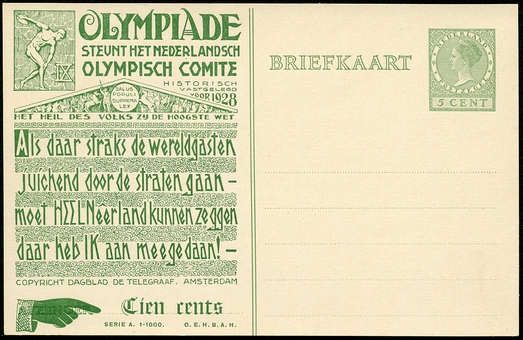 OLYMPIADE
STEUNT HET NEDERLANDSCH
OLYMPISCH COMITE
IX
HISTORISCH
VASTGELEGD
VOOR 1928
SALUS
POPULI
SUPREMA
LEX
HET HEIL DES VOLKS ZY DE HOOGSTE WET
Als daar straks de wereldgasten
juichend door de straten gaan –
moet HEEL Neerland kunnen zeggen
daar heb IK aan meegedaan! –
COPYRIGHT DAGBLAD DE TELEGRAAF. AMSTERDAM
Tien cents
SERIE A. 1-1000. O.E.H.B.A.H.
BRIEFKAART
NEDERLAND
5 CENT